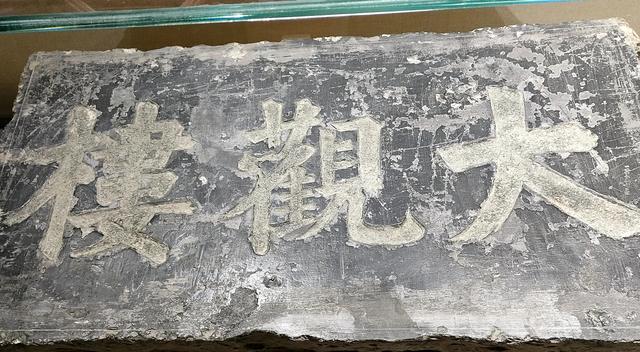 大觀樓